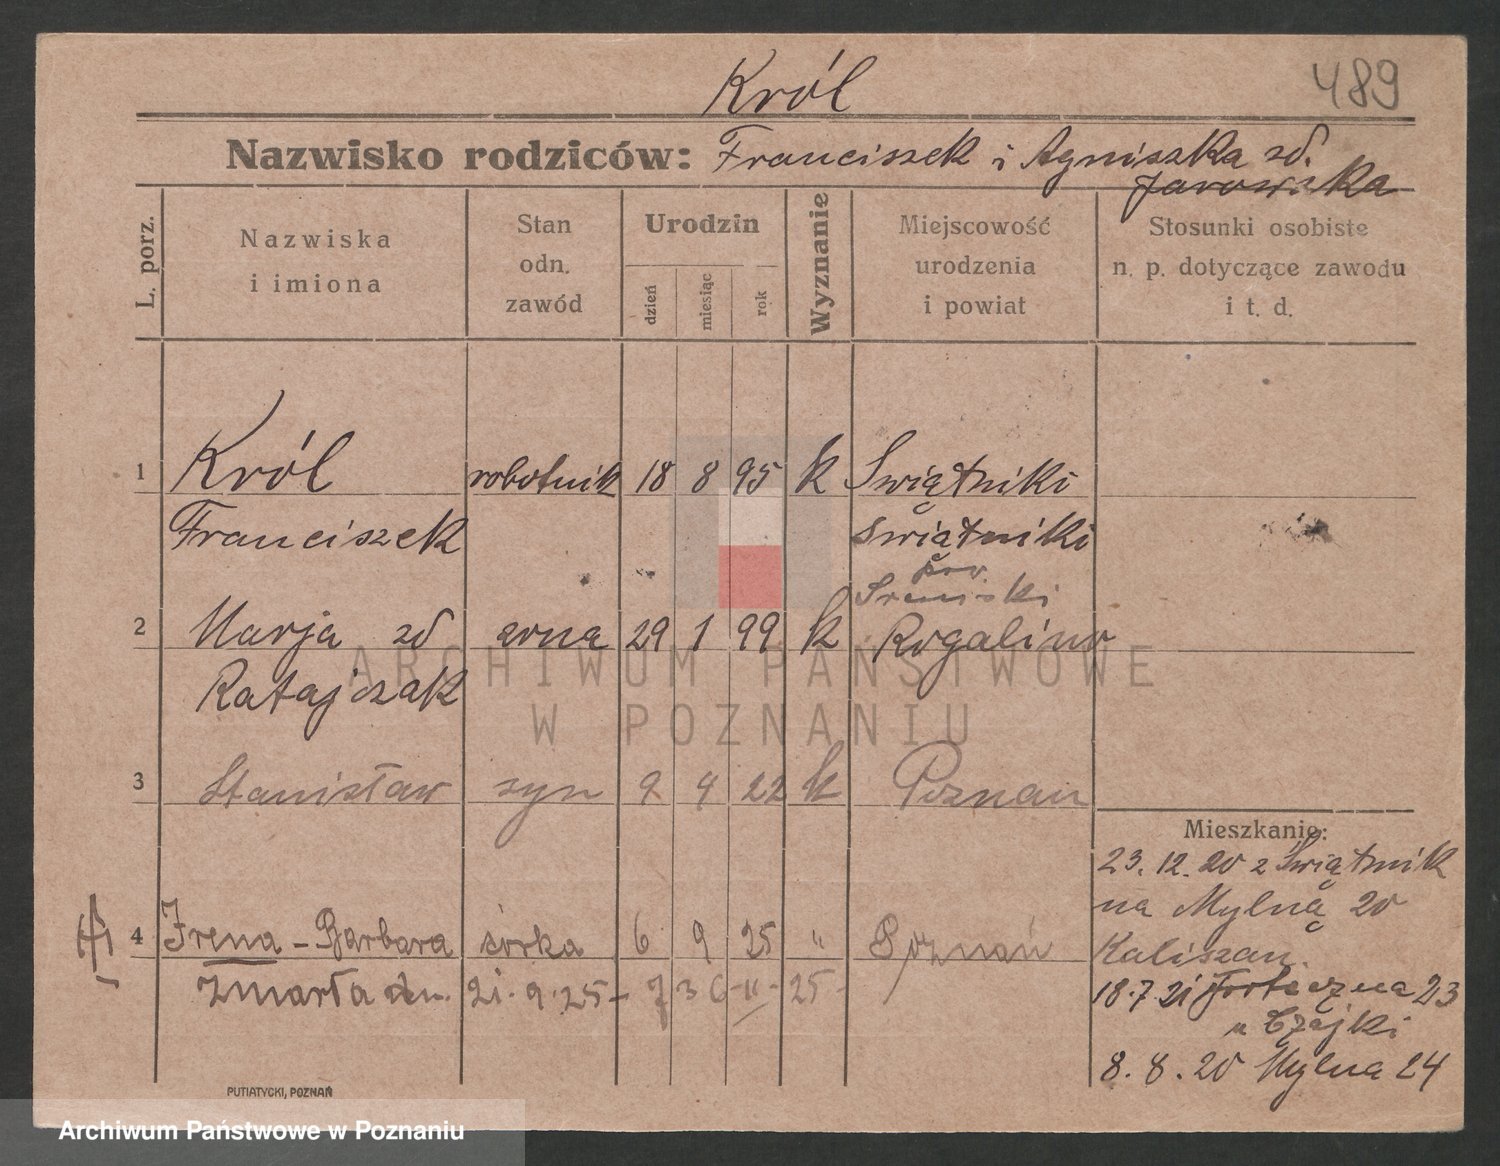 Król
489
Nazwisko rodziców: Franciszek i Agniszka zd.
L. porz.
Nazwiska
i imiona
Stan
odn.
zawód
Urodzin
dzień
miesiąc
rok
Wyznanie
Miejscowość
urodzenia
i powiat
Stosunki osobiste
n. p. dotyczące zawodu
i t. d.
1 Król robotnik 18 8 95 k Swiątniki
Franciszek Swiątniki
pow.
2 Marja zd żona 29 1 99 k Rogalinw
Ratajczak
3 Stanisław syn 9 4 22 k Poznan
Mieszkanie:
23. 12. 20 z Swiątnik
na Mylną 20
4 Irena - Barbara córka 6 9 25 " Poznań
Kaliszan.
zmarła dn. 21. 9. 25 -
18.7 21 Forteczna 23
u Czajki
8. 8. 20 Mylna 24
PUTIATYCKI, POZNAŃ
ARCHIWUM PAŃSTWOWE
W POZNANIU
Archiwum Państwowe w Poznaniu